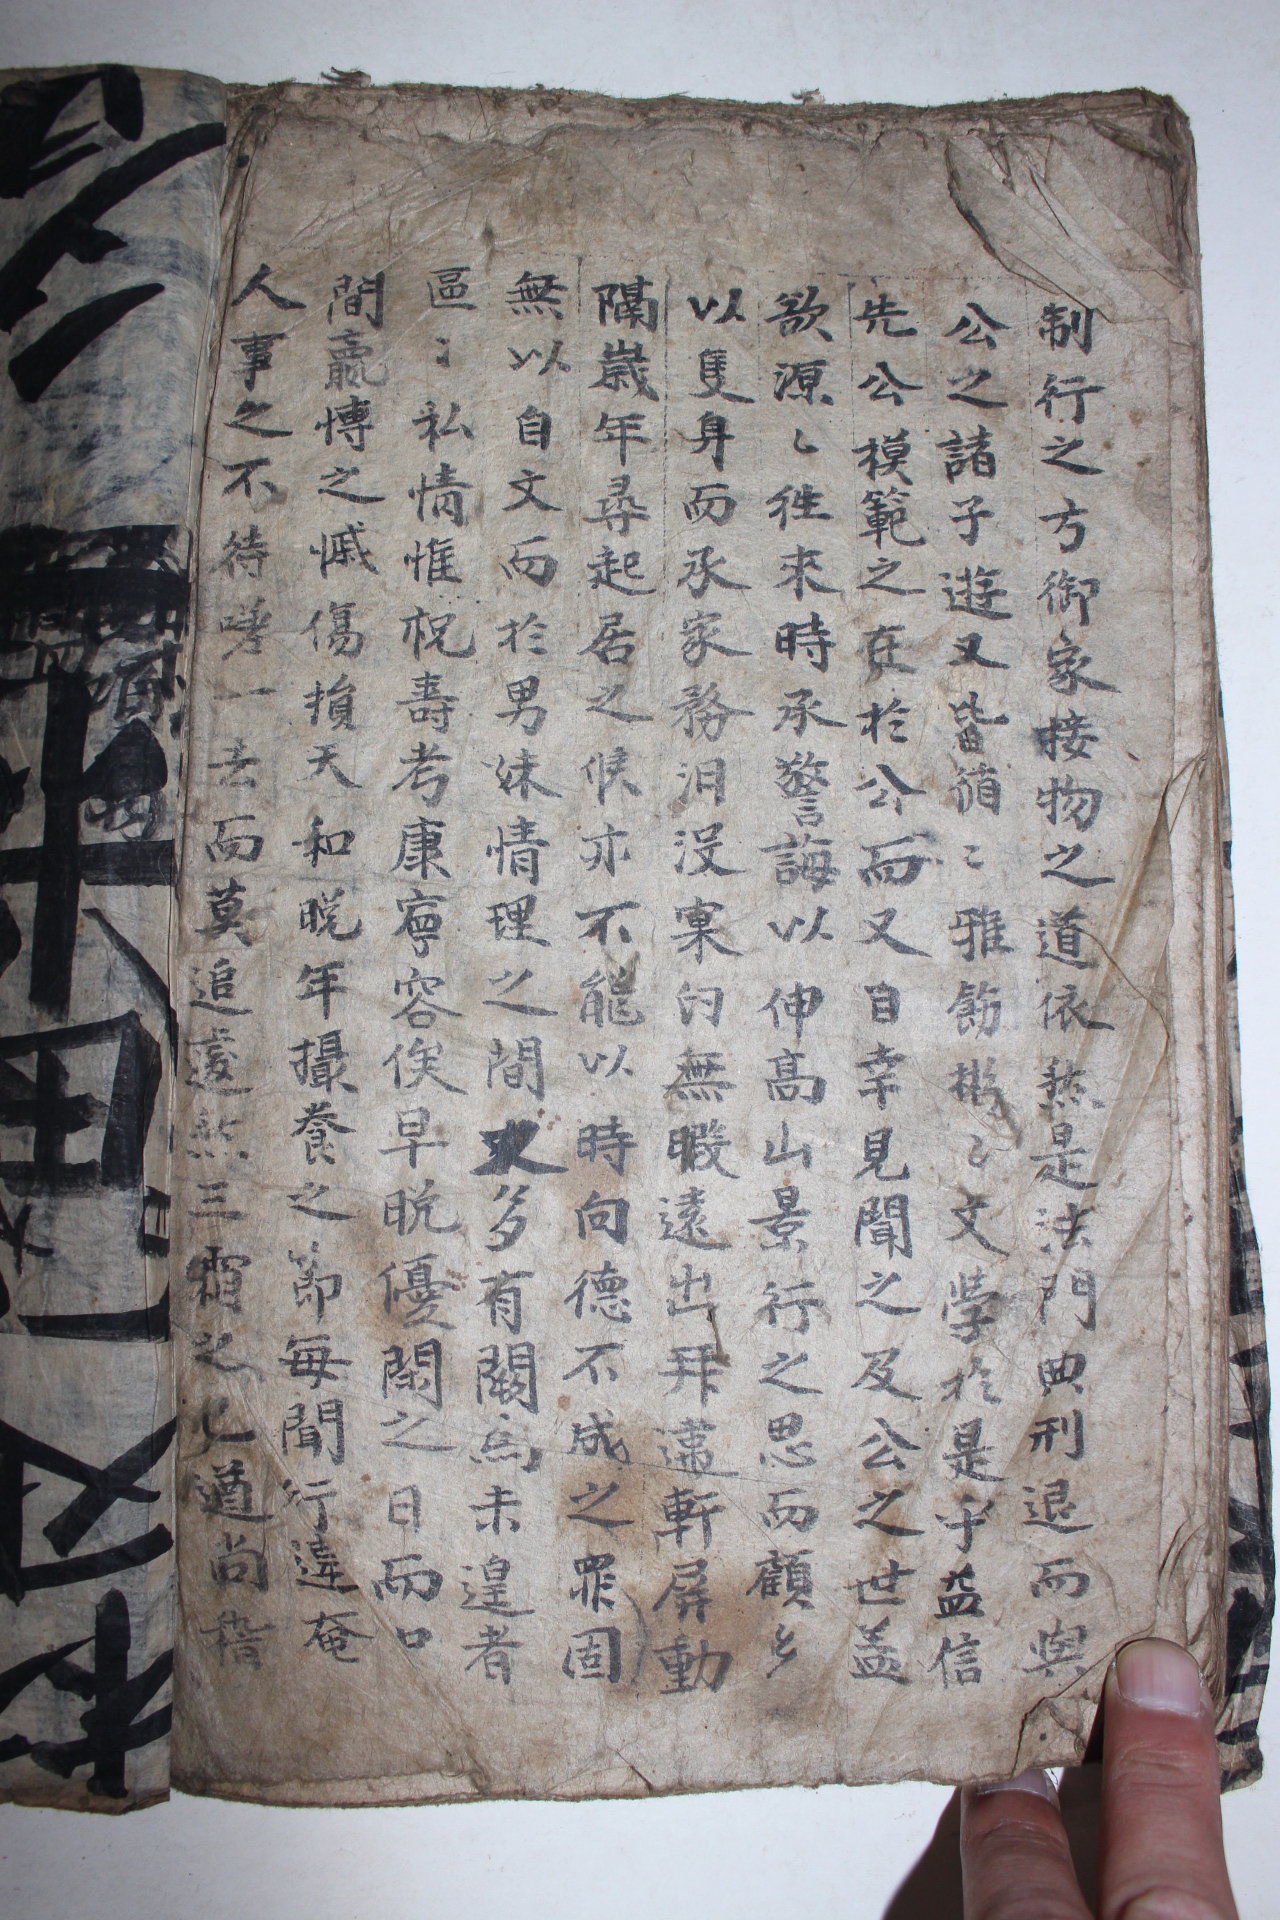 制行之方御家接物之道依然是法門典刑退而與
公之諸子遊又皆循〻雅飭彬〻文學於是乎益信
先公模範之在於公而又自幸見聞之及公之世盖
欲源〻徃來時承警誨以伸高山景行之思而顧乡
以隻身而承家務汨沒窠臼無暇遠出拜違軒屏動
隔歲年尋起居之候亦不能以時向德不成之罪固
無以自文而於男妹情理之間多有闕焉未遑者
區〻私情惟祝壽考康寧容俟早晩優閑之日而口
間嬴慱之慽傷損天和晩年攝養之節每聞行違奄
人事之不待嗟一去而莫追遽然三霜之已遒尚稽